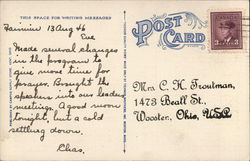 THIS SPACE FOR WRITING MESSAGES
POST CARD
Fairview 13 Aug 46
Eve
Made several changes
in the program to
give more time for
prayer. Brought the
speakers into our leaders
meetings. A good moon
tonight, but a cold
settling down.
Chas.
Mrs C. H. Troutman,
1473 Beall St.,
Wooster, Ohio, U.S.A.
3 3